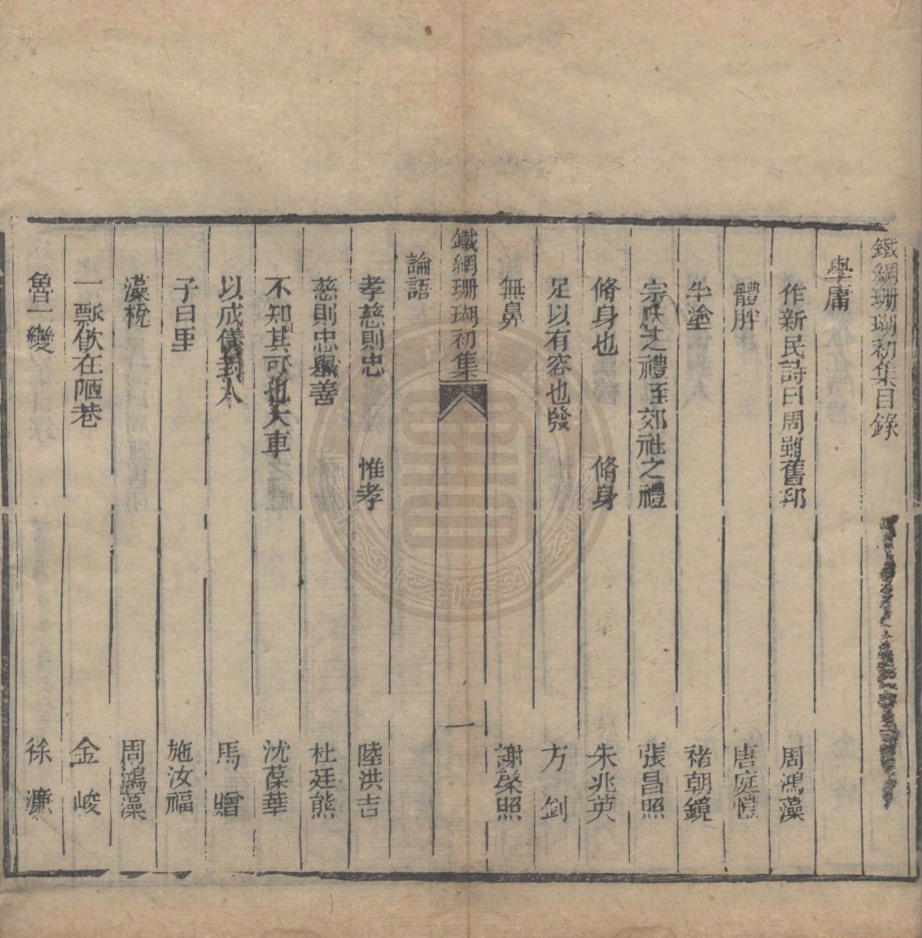 鐵網珊瑚初集目錄
學庸
作新民詩曰周雖舊邦 周鴻藻
體胖 唐庭
半塗 褚朝鏡
宗廟之禮至郊社之禮 張昌照
脩身也 脩身 朱兆英
足以有容也發 方劍
無臭 謝榮照
鐵網珊瑚初集 一
論語
孝慈則忠 惟孝 陸洪吉
慈則忠舉善 杜廷熊
不知其可也大車 沈葆華
以成儀封人 馬贈
子曰里 施汝福
藻梲 周鴻藻
一瓢飲在陋巷 金峻
魯一變 徐濂